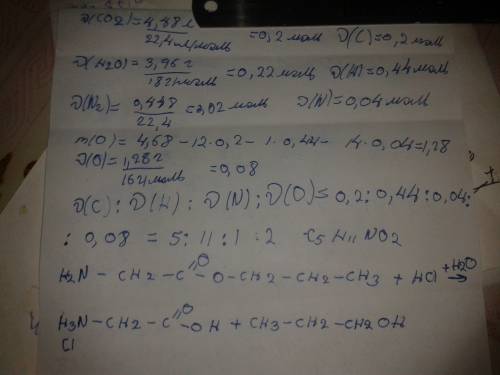 ν(CO2)=4,48л/22,4л/моль =0,2моль ν(C)=0,2моль
ν(H2O)=3,96г/18г/моль=0,22моль ν(H)=0,44моль
ν(N2)=0,448/22,4=0,02моль ν(N)=0,04моль
m(O)=4,68-12·0,2-1·0,44-14·0,04=1,28
ν(O)=1,28г/16г/моль=0,08
ν(C):ν(H):ν(N):ν(O)=0,2:0,44:0,04:
:0,08=5:11:1:2 C5H11NO2
H2N-CH2-C(=O)-O-CH2-CH2-CH3+HCl +H2O→
H3N-CH2-C(=O)-OH+CH3-CH2-CH2OH
Cl